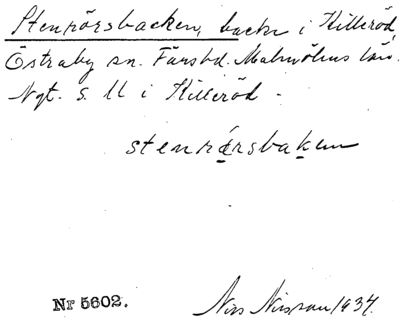 Stenrörsbacken, backe i Killeröd,
Östraby sn. Färs hd. Malmöhus län.
Ngt. s. ll i Killeröd.
stenrǿrsbaken
Nr 5602.
Nils Nilsson 1934.